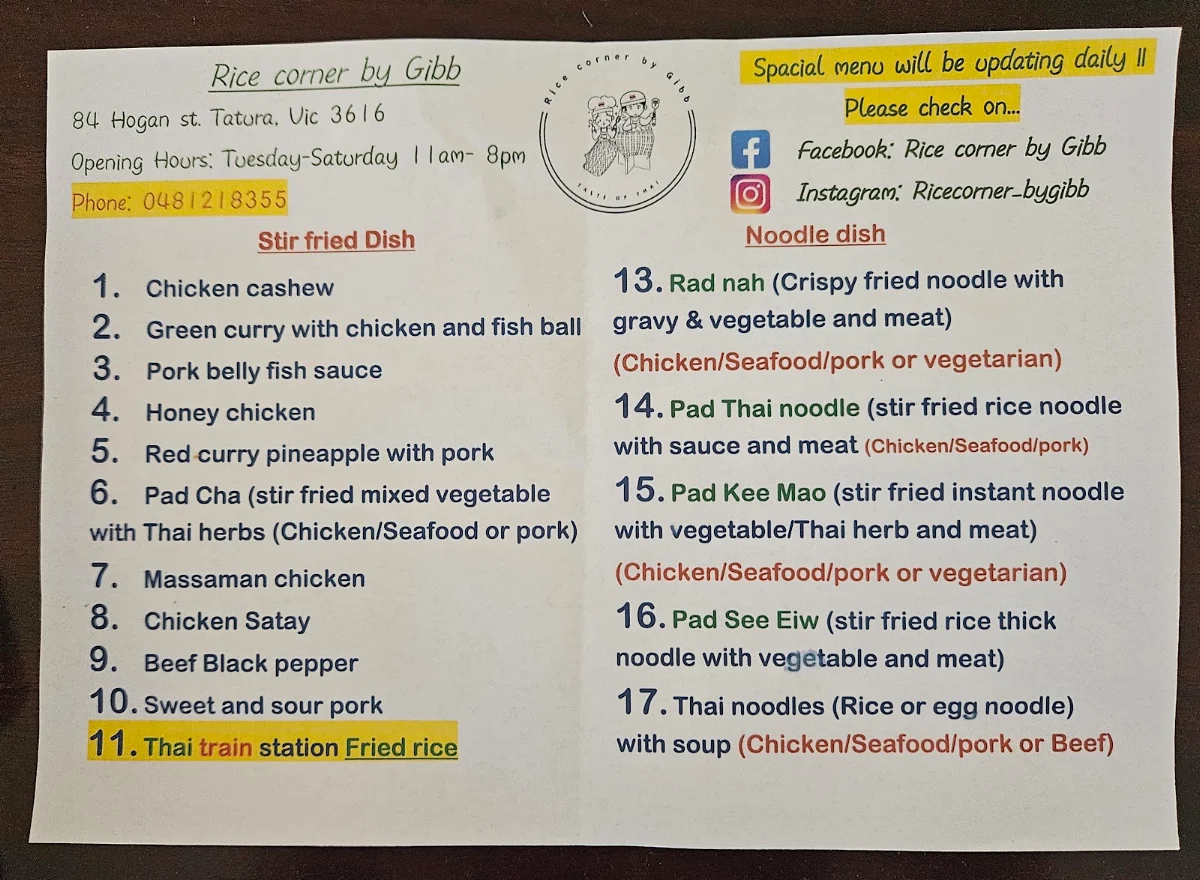 Rice corner by Gibb
84 Hogan st. Tatura, Vic 3616
Opening Hours: Tuesday-Saturday 11am- 8pm
Phone: 0481218355
Rice corner by Gibb
TASTE OF THAI
Spacial menu will be updating daily !!
Please check on...
Facebook: Rice corner by Gibb
Instagram: Ricecorner_bygibb
Stir fried Dish
1. Chicken cashew
2. Green curry with chicken and fish ball
3. Pork belly fish sauce
4. Honey chicken
5. Red curry pineapple with pork
6. Pad Cha (stir fried mixed vegetable
with Thai herbs (Chicken/Seafood or pork)
7. Massaman chicken
8. Chicken Satay
9. Beef Black pepper
10. Sweet and sour pork
11. Thai train station Fried rice
Noodle dish
13. Rad nah (Crispy fried noodle with
gravy & vegetable and meat)
(Chicken/Seafood/pork or vegetarian)
14. Pad Thai noodle (stir fried rice noodle
with sauce and meat (Chicken/Seafood/pork)
15. Pad Kee Mao (stir fried instant noodle
with vegetable/Thai herb and meat)
(Chicken/Seafood/pork or vegetarian)
16. Pad See Eiw (stir fried rice thick
noodle with vegetable and meat)
17. Thai noodles (Rice or egg noodle)
with soup (Chicken/Seafood/pork or Beef)